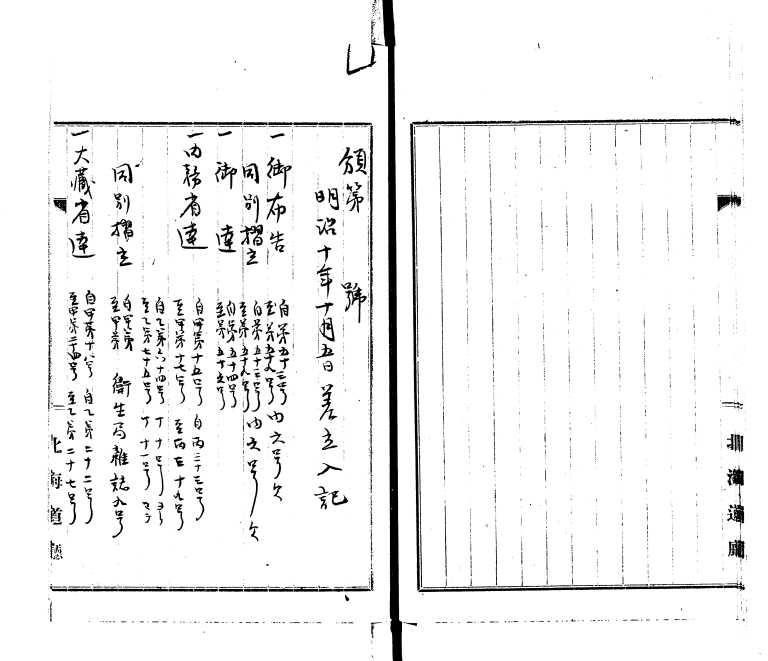 頒第　號
明治十年十月五日差立入記
一御布告　自第五十三号　至第五十九号　内六号欠
同別摺立　自第五十三号　至第五十九号　内六号欠
一御達　自第五十四号　至第五十六号
一内務省達　自甲第十五号　至甲第十七号　自丙三十三号
自乙第六十四号　至乙第七十五号　丁十号　丁十一号
同別摺立　自甲第　至甲第　衛生局雑誌九号
一大蔵省達　自甲第十八号　至甲第二十四号　自乙第二十二号　至乙第二十七号
北海道廳
北海道廳